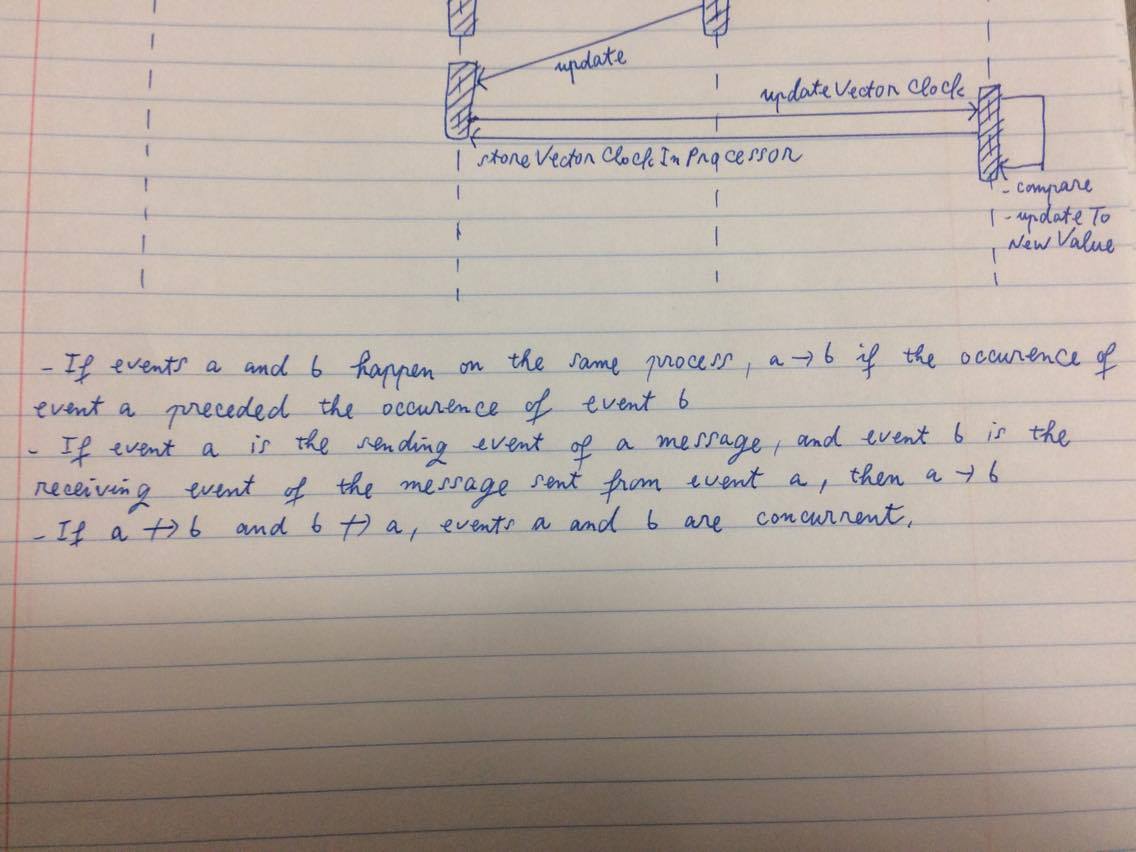 update
updateVector Clock
storeVector Clock In Processor
- compare
- update To
New Value
- If events a and b happen on the same process, a → b if the occurence of
event a preceded the occurence of event b
- If event a is the sending event of a message, and event b is the
receiving event of the message sent from event a, then a → b
- If a ↛ b and b ↛ a, events a and b are concurrent.